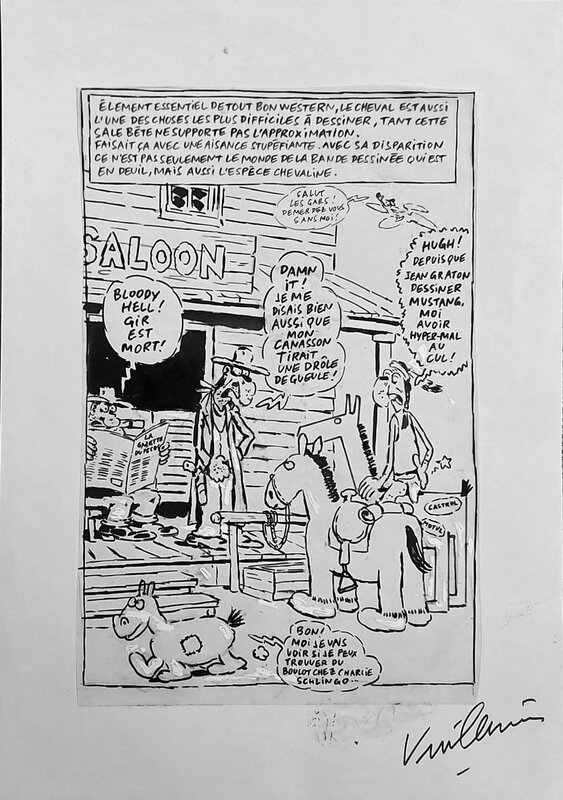 ÉLEMENT ESSENTIEL DE TOUT BON WESTERN, LE CHEVAL EST AUSSI
L'UNE DES CHOSES LES PLUS DIFFICILES À DESSINER, TANT CETTE
SALE BÊTE NE SUPPORTE PAS L'APPROXIMATION.
FAISAIT ÇA AVEC UNE AISANCE STUPÉFIANTE. AVEC SA DISPARITION
CE N'EST PAS SEULEMENT LE MONDE DE LA BANDE DESSINÉE QUI EST
EN DEUIL, MAIS AUSSI L'ESPÈCE CHEVALINE.
SALUT
LES GARS!
DEMERDEZ VOUS
SANS MOI!
SALOON
BLOODY
HELL!
GIR
EST
MORT!
DAMN
IT!
JE ME
DISAIS BIEN
AUSSI QUE
MON
CANASSON
TIRAIT
UNE DRÔLE
DE GUEULE!
HUGH!
DEPUIS QUE
JEAN GRATON
DESSINER
MUSTANG,
MOI
AVOIR
HYPER-MAL
AU
CUL!
LA
GAZETTE
CASTROL
MOTUL
BON!
MOI JE VAIS
VOIR SI JE PEUX
TROUVER DU
BOULOT CHEZ CHARLIE
SCHLINGO...
Vuillemin